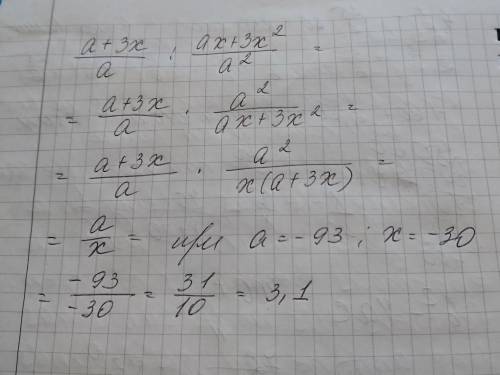 (a+3x)/a : (ax+3x²)/a² =
= (a+3x)/a · a²/(ax+3x²) =
= (a+3x)/a · a²/(x(a+3x)) =
= a/x = при a = -93 ; x = -30
= -93/-30 = 31/10 = 3,1